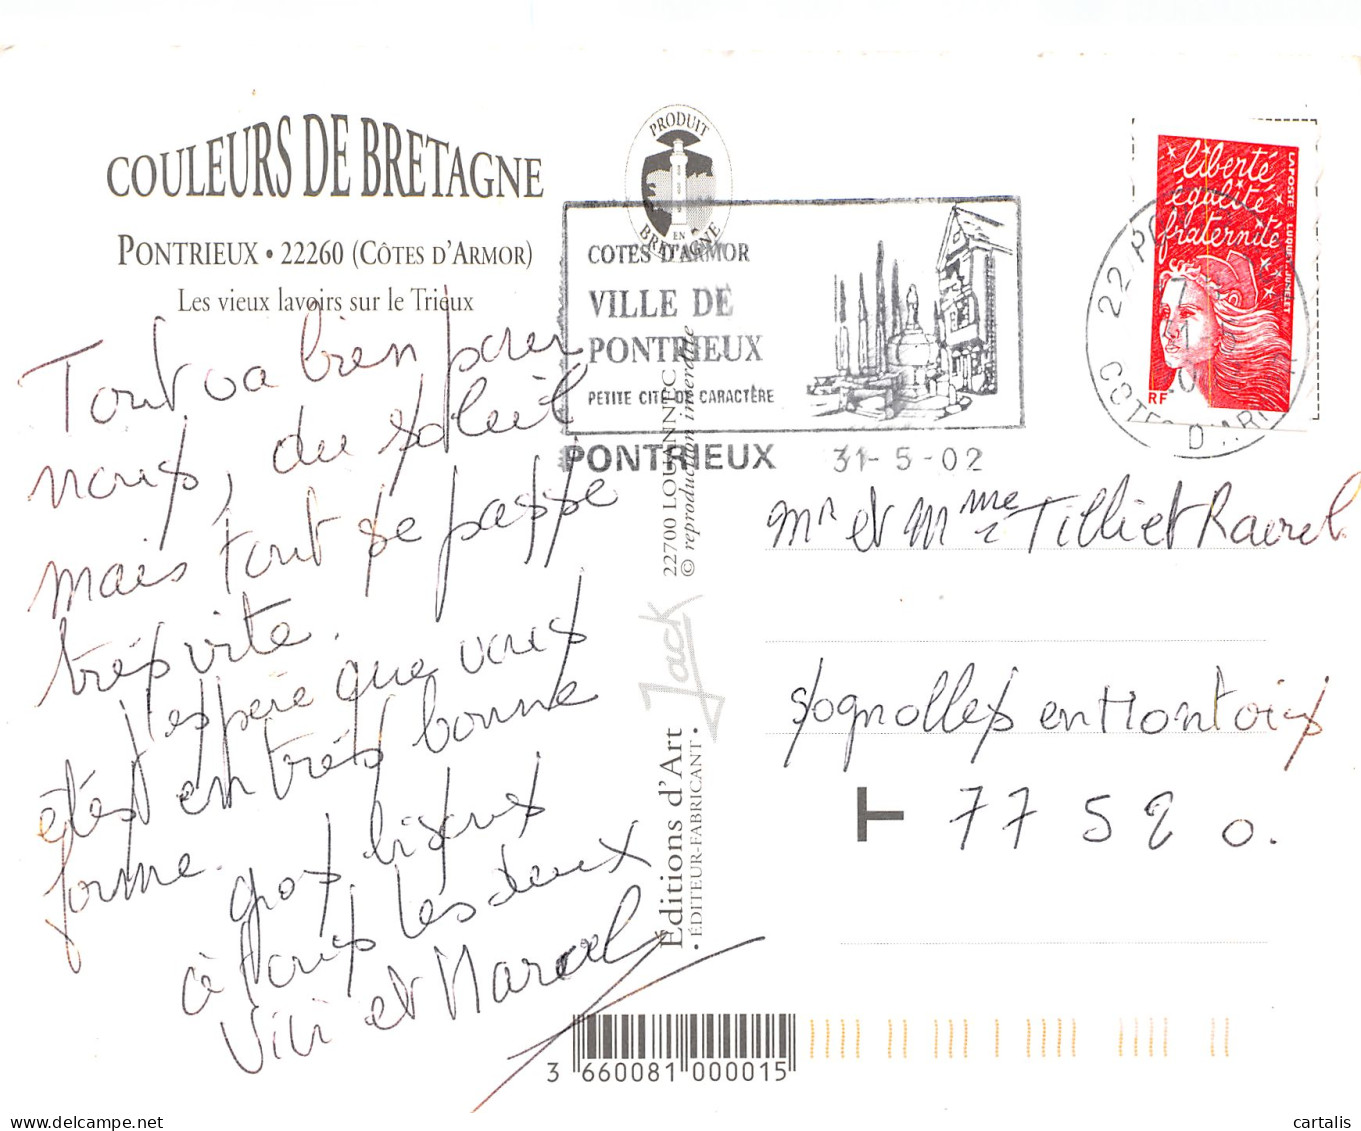 COULEURS DE BRETAGNE
PONTRIEUX • 22260 (CÔTES D'ARMOR)
Les vieux lavoirs sur le Trieux
Tout va bien pour
nous, du soleil
mais tout se passe
très vite.
J'espère que vous
êtes en très bonne
forme.
gros bisous
à tous les deux
Vivi et Marcel
PRODUIT
EN
BRETAGNE
COTES D'ARMOR
VILLE DE
PONTRIEUX
PETITE CITE DE CARACTÈRE
PONTRIEUX 31-5-02
22700 LOUANNEC
© reproduction interdite
Jack
Editions d'Art
• ÉDITEUR-FABRICANT •
liberté
égalité
fraternité
LAPOSTE LUQUET
RF
22
COTES D'ARMOR
Mr et Mme Tilliet
Sognolles en Montois
T 77520.
3 660081 000015
www.delcampe.net
cartalis